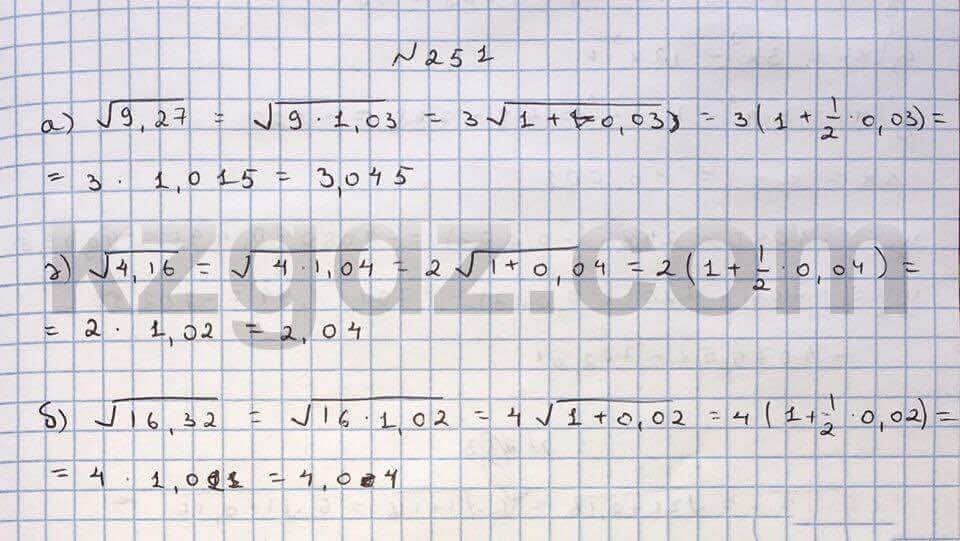 №251
а) √9,27 = √9·1,03 = 3√1+0,03 = 3(1+1/2·0,03)=
= 3 · 1,015 = 3,045
kzgdz.com
г) √4,16 = √4·1,04 = 2√1+0,04 = 2(1+1/2·0,04)=
= 2 · 1,02 = 2,04
б) √16,32 = √16·1,02 = 4√1+0,02 = 4(1+1/2·0,02)=
= 4 · 1,01 = 4,04